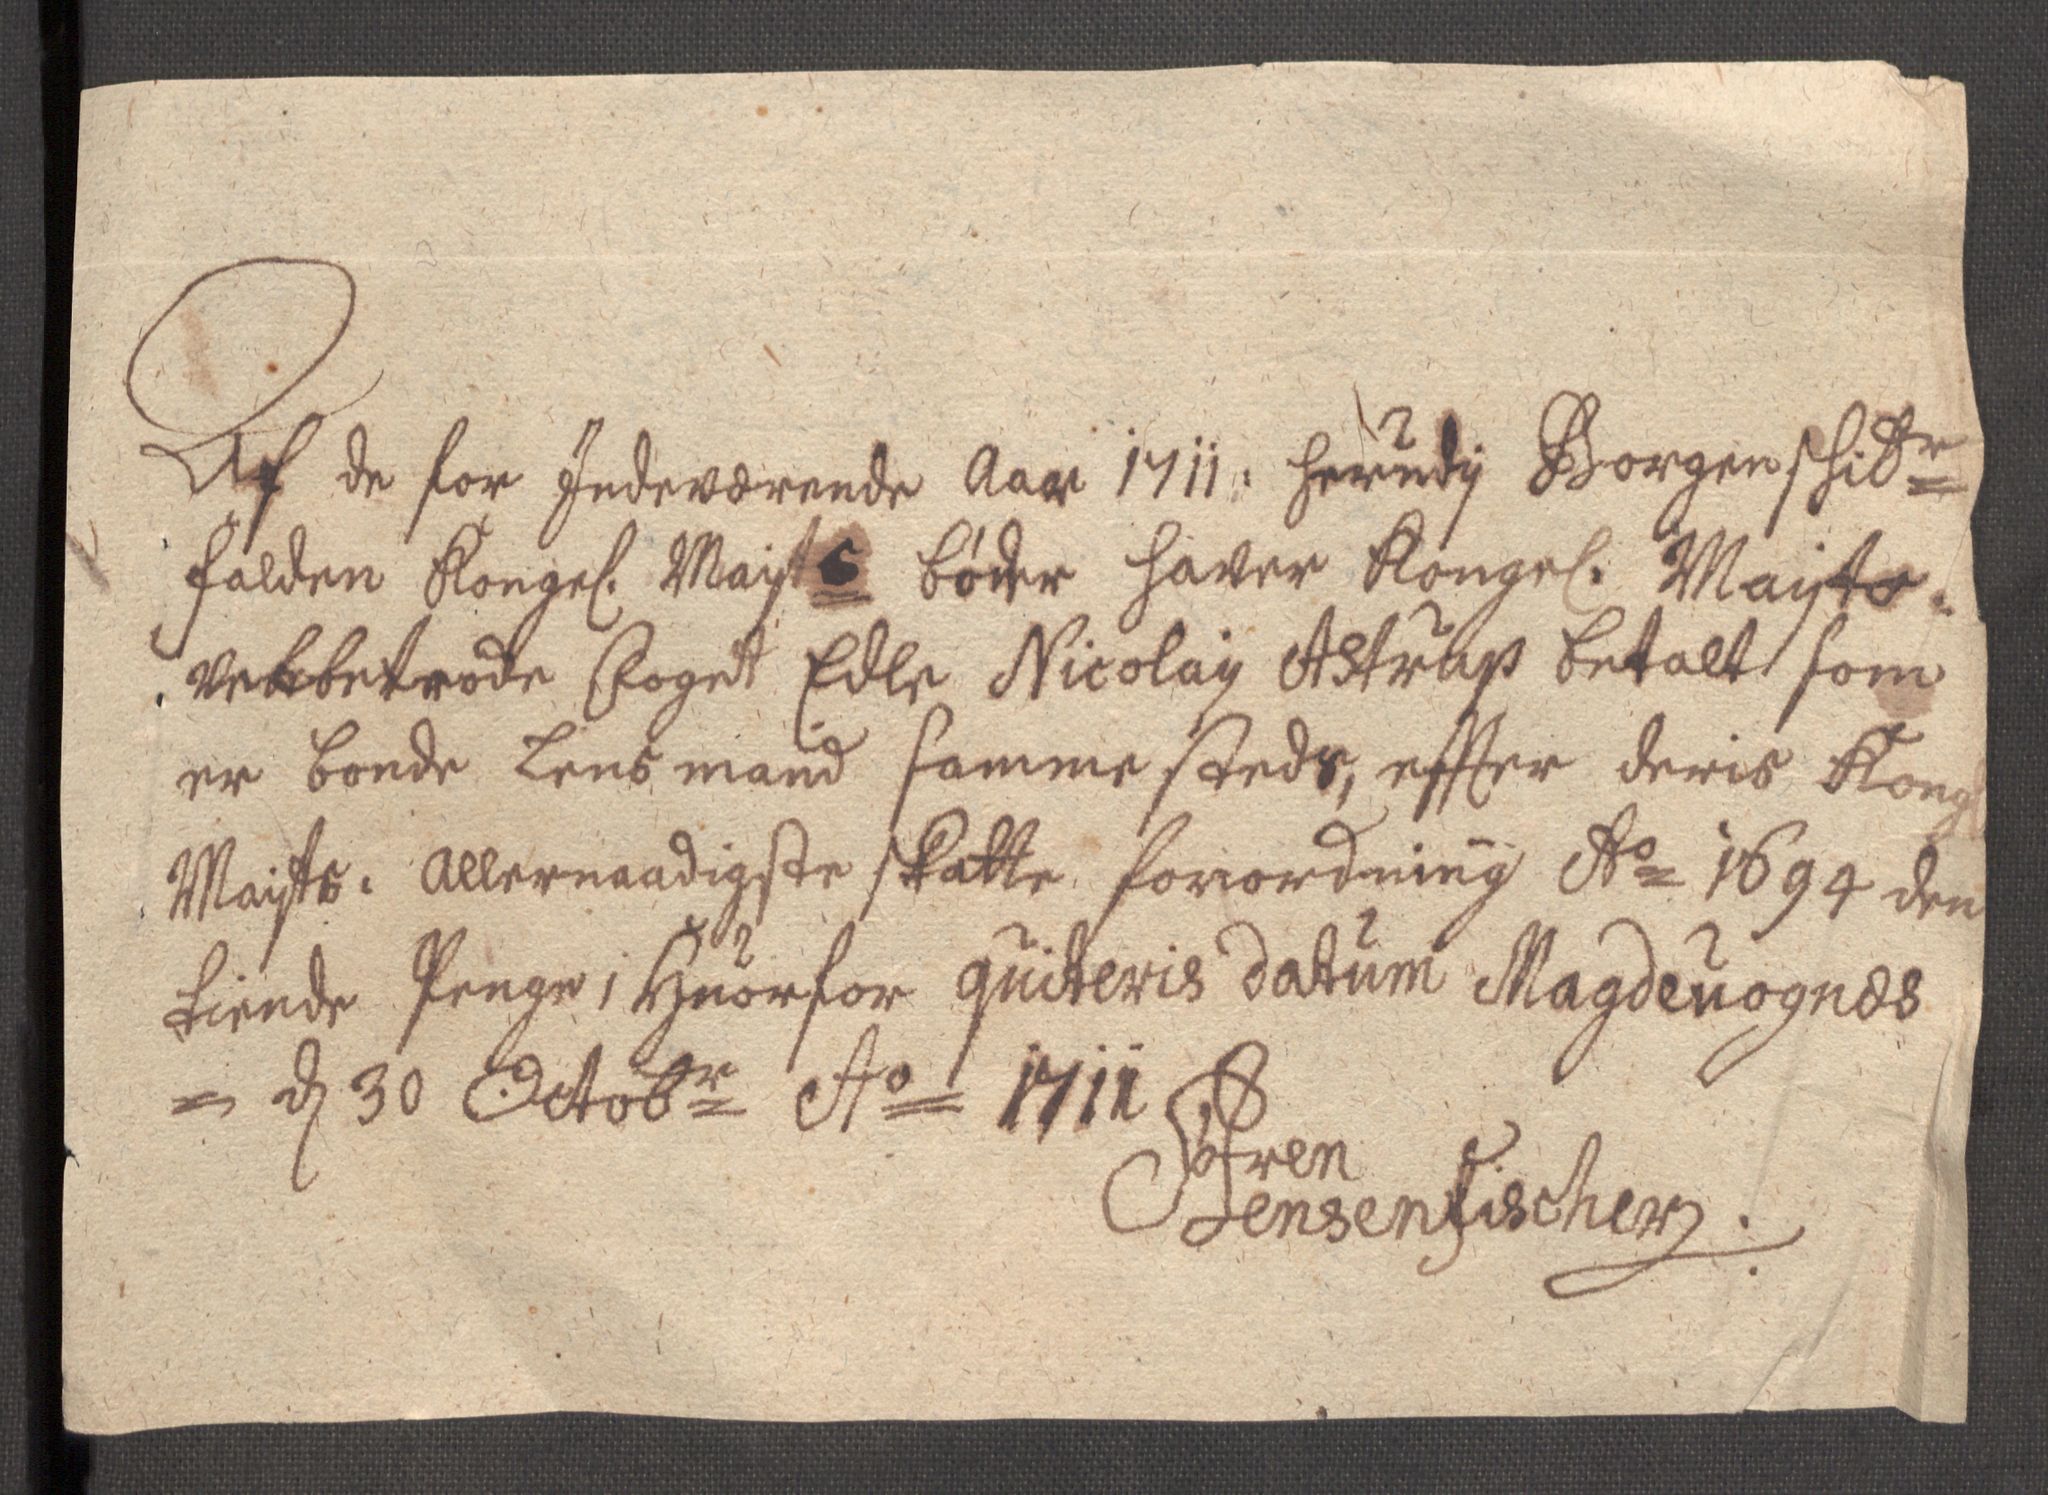 Af de for Indeværende Aar 1711. herudj Borgenschibr
falden Kongel. Mayts bøder haver Kongel. Mayts.
velbetrode Foget Edle Nicolaij Astrup betalt som
er bonde Lensmand samme steds, effter deris Kongl
Mayts. Allernaadigste skatte forordning Ao 1694 den
tiende Penge, Huorfor quiteris datum Magdeuognæs
d 30 Octobr Ao 1711
Søfren
Jensen Fischer